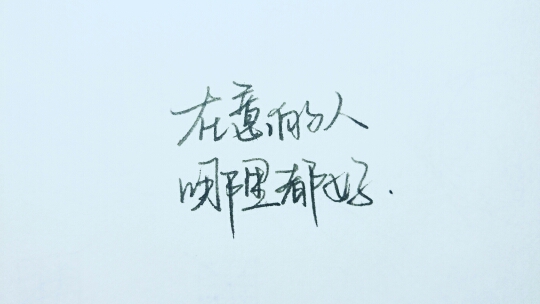 在意的人
哪里都好.